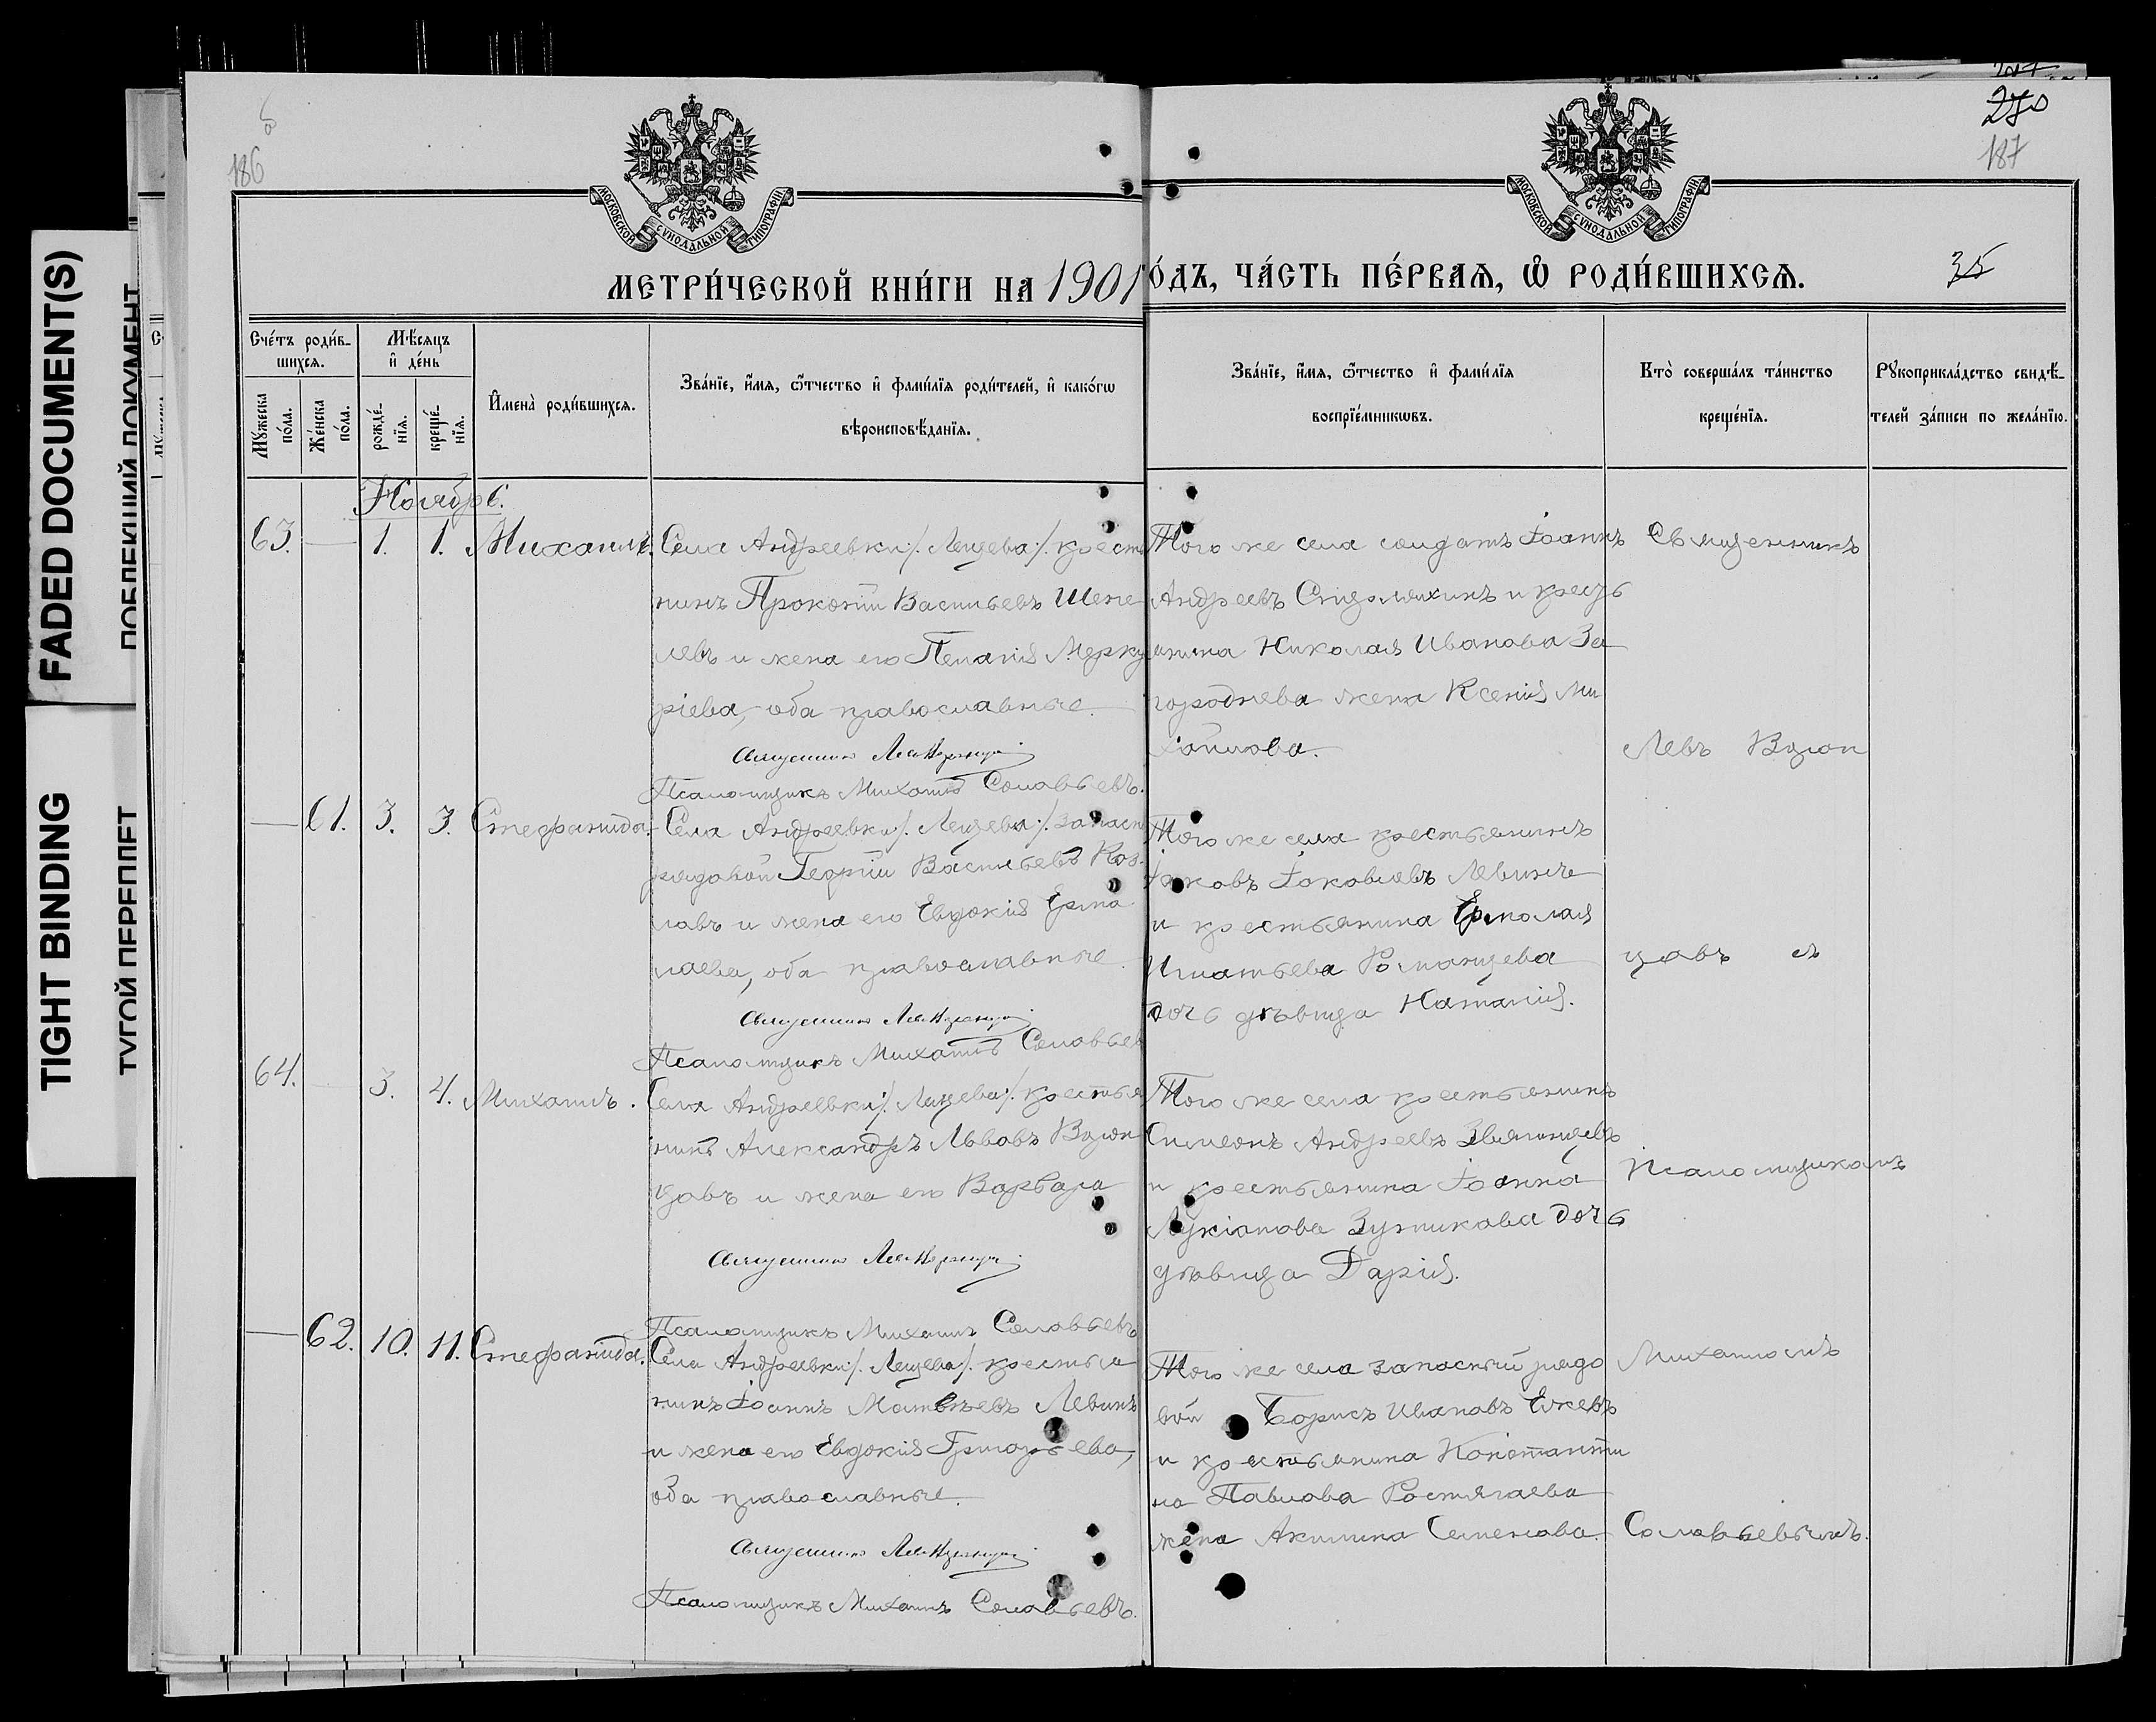 FADED DOCUMENT(S)
TIGHT BINDING
ТУГОЙ ПЕРЕПЛЕТ
186
280
187
МОСКОВСКОЙ СУНОДАЛЬНОЙ ТИПОГРАФІИ.
МОСКОВСКОЙ СУНОДАЛЬНОЙ ТИПОГРАФІИ.
МЕТРИ́ЧЕСКОЙ КНИ́ГИ НА 1901
О́ДЪ, ЧА́СТЬ ПЕ́РВАЯ, Ѽ РОДИ́ВШИХСЯ.
35
Сче́тъ роди́в-
шихся.
Мѣ́сяцъ
и҆ де́нь
Мꙋ́жеска
по́ла.
Же́нска
по́ла.
рожде́-
нїя.
креще́-
нїя.
И҆мена̀ роди́вшихся.
Зва́нїе, и҆́мя, ѻ҆́тчество и҆ фами́лїя роди́телей, и҆ како́гѡ
вѣроисповѣ́данїя.
Зва́нїе, и҆́мя, ѻ҆́тчество и҆ фами́лїя
воспрїе́мникѡвъ.
Кто̀ соверша́лъ та́инство
креще́нїя.
Рꙋкоприкла́дство свидѣ́-
телей за́писи по жела́нїю.
Ноябрь.
63. — 1. 1. Михаилъ.
Села Андреевки /: Лещева :/ крестья
нинъ Прокопій Васильевъ Шепе
левъ и жена его Пелагія Мерку
ріева, оба православные.
Священникъ Левъ
Псаломщикъ Михаилъ Соловьевъ.
Того же села солдатъ Іоаннъ
Андреевъ и кресть
янина Николая Иванова За
города жена Ксенія Ми
хайлова.
Священникъ
Левъ
— 61. 3. 3. Стефанида.
Села Андреевки /: Лещева :/ запасн
рядовой Георгій Васильевъ Коз
ловъ и жена его Евдокія Ермо
лаева, оба православные.
Священникъ Левъ
Псаломщикъ Михаилъ Соловьев
Того же села крестьянинъ
Іаковъ Іаковлевъ Левинъ
и крестьянина Ермолая
Игнатьева Романцева
дочь дѣвица Наталія.
цовъ съ
64. — 3. 4. Михаилъ.
Села Андреевки /: Лещева :/ крестья
нинъ Александръ Львовъ
цовъ и жена его Варвара
Священникъ Левъ
Псаломщикъ Михаилъ Соловьевъ
Того же села крестьянинъ
Симеонъ Андреевъ Звягинцевъ
и крестьянина Іоанна
Лукіанова дочь
дѣвица Дарія.
Псаломщикомъ
— 62. 10. 11. Стефанида.
Села Андреевки /: Лещева :/ крестья
нинъ Іоаннъ Матвѣевъ Левинъ
и жена его Евдокія Григорьева,
оба православные.
Священникъ Левъ
Псаломщикъ Михаилъ Соловьевъ.
Того же села запасный рядо
вой Борисъ Ивановъ Ежевъ
и крестьянина Константи
на Павлова Ростягаева
жена Акилина Семенова.
Михаиломъ
Соловьевымъ.